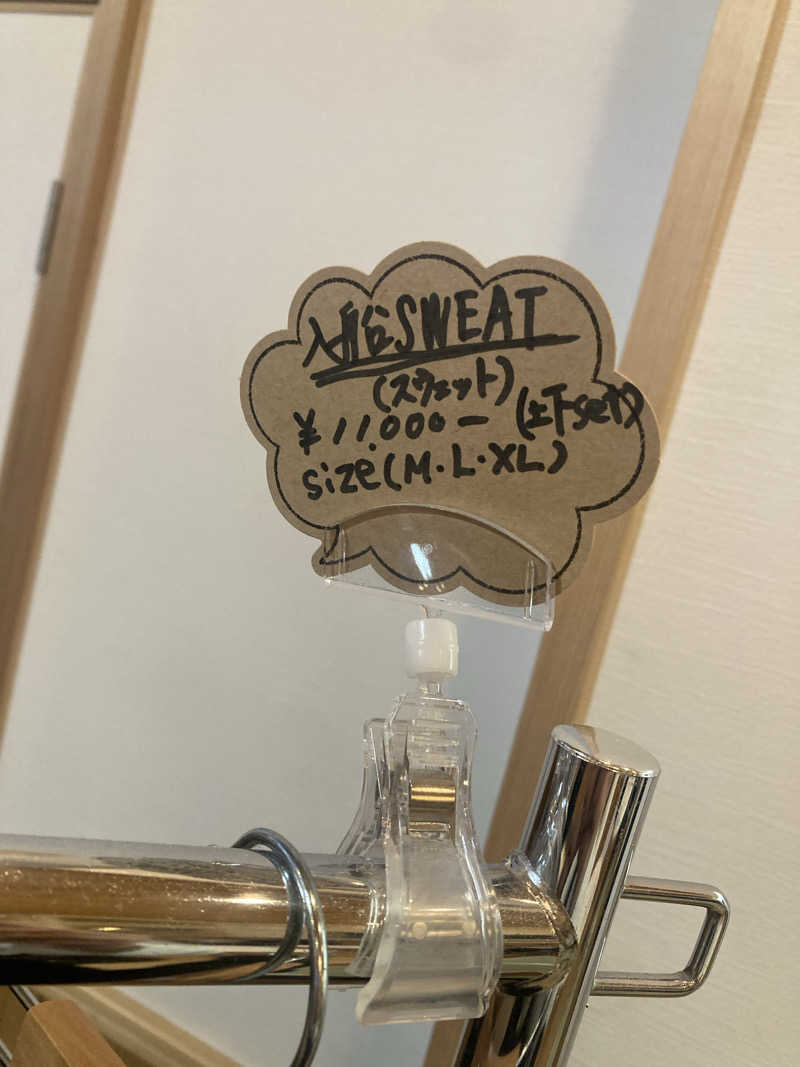 SWEAT
(スウェット)
¥11.000ー (上下set)
size(M・L・XL)